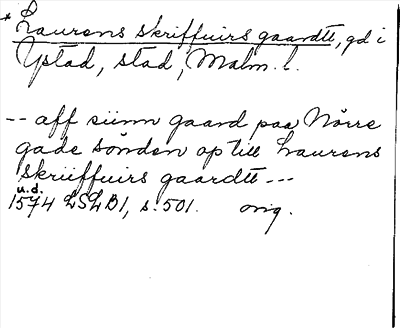 * Laurens skriffuirs gaardtt, gd i
Ystad, stad, Malm. l.
-- aff siinn gaard paa Nörre
gade sönden op till Laurens
skriiffuirs gaardtt ---
u.d.
1574 LSLB1, s. 501. orig.